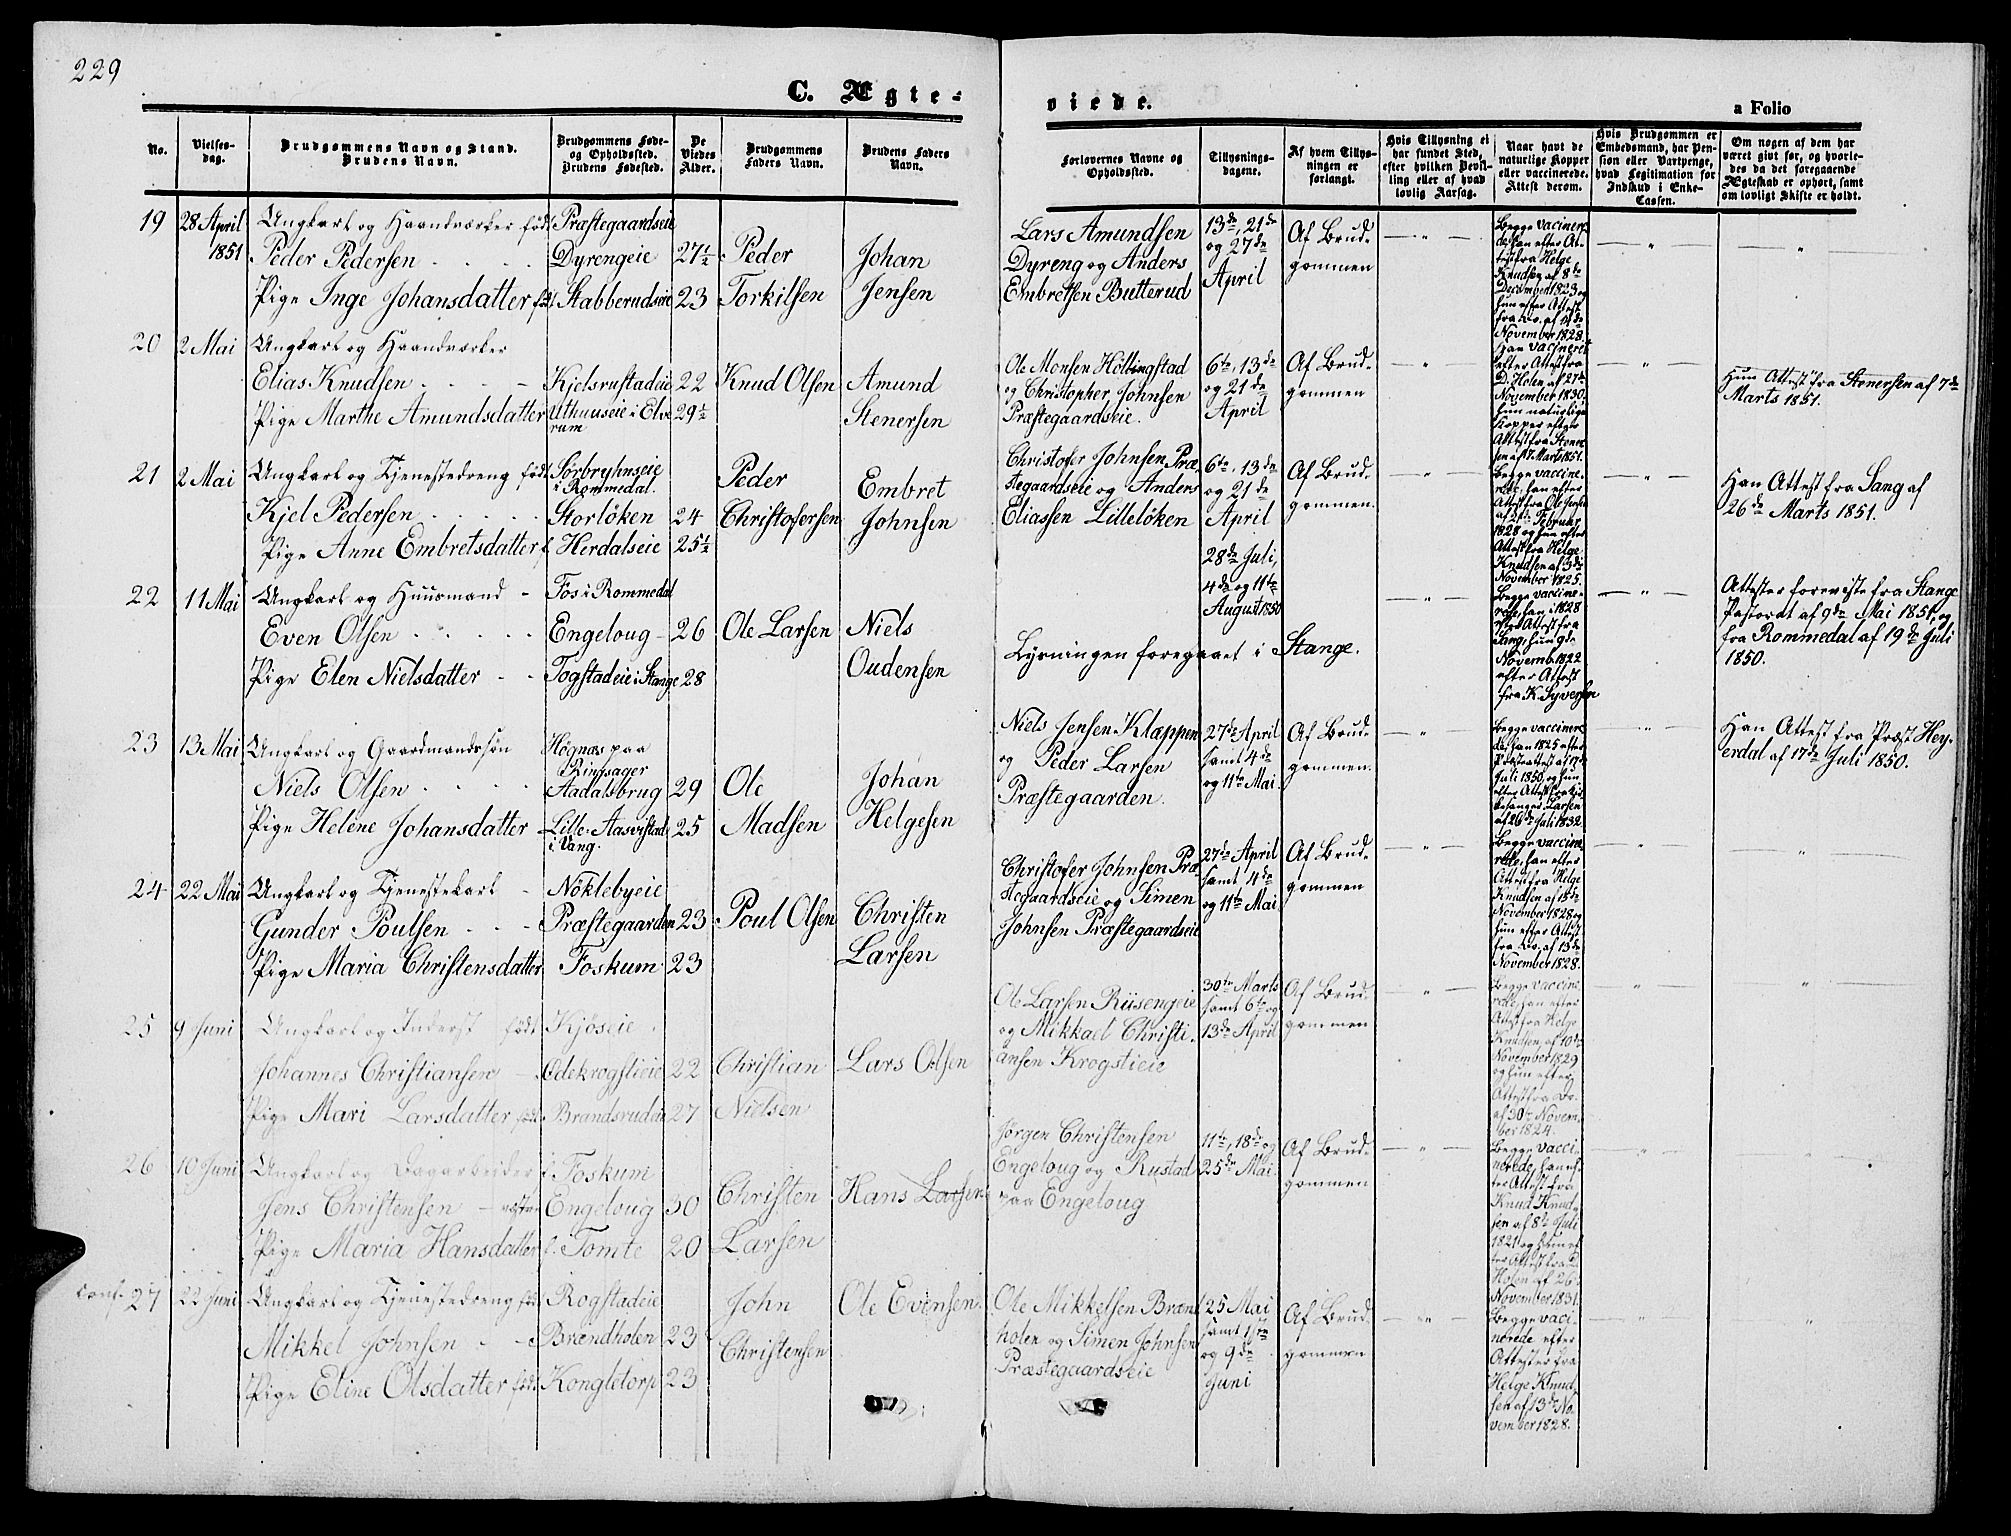 229
C. Ægte-
viede.
a Folio
No.
Vielses-
dag.
Brudgommens Navn og Stand.
Brudens Navn.
Brudgommens Føde-
og Opholdssted.
Brudens Fødested.
De
Viedes
Alder.
Brudgommens
Faders Navn.
Brudens Faders
Navn.
Forlovernes Navne og
Opholdssted.
Tillysnings-
dagene.
Af hvem Tillys-
ningen er
forlangt.
Hvis Tillysning ei
har fundet Sted,
efter hvilken Bevil-
ling eller af hvad
lovlig Aarsag.
Naar havt de
naturlige Kopper
eller vaccinerede.
Attest derom.
Hvis Brudgommen er
Embedsmand, har Pen-
sion eller Vartpenge,
hvad Legitimation for
Indskud i Enke-
Cassen.
Om nogen af dem har
været givt før, og hvorle-
des da det foregaaende
Ægteskab er ophørt, samt
om lovligt Skifte er holdt.
19
28 April
1851
Ungkarl og Haandværker født
Peder Pedersen
Pige Inge Johansdatter f.
Præstegaardseie
Dyrengeie
Stabberudseie
27½
23
Peder
Torkilsen
Johan
Jensen
Lars Amundsen
Dyreng og Anders
Embretsen Butterud
13de, 21de
og 27de
April
Af Brud-
gommen
Begge vacinere-
de, han efter At-
test fra Helge
Knudsen af 8de
December 1823 og
hun efter Attest
fra Do. af 14de
November 1828.
20
2 Mai
Ungkarl og Haandværker
Elias Knudsen
Pige Marthe Amundsdatter
Kjelsrustadeie
Uthuuseie i Elve
rum
22
29½
Knud Olsen
Amund
Stenersen
Ole Monsen Höllingstad
og Christopher Johnsen
Præstegaardseie.
6te, 13de
og 21de
April
Af Brud-
gommen
Han vacineret
efter Attest fra
D. Holen af 27de
November 1830.
hun naturlige
Kopper efter
Attest fra Stener-
sen af 7. Marts 1851.
Hun Attest fra Stenersen af 7de
Marts 1851.
21
2 Mai
Ungkarl og Tjenestedreng født
Kjel Pedersen
Pige Anne Embretsdatter f.
Sörbryhnseie
i Rommedal.
Storlöken
Herdalseie
24
25½
Peder
Christofersen
Embret
Johnsen
Christofer Johnsen Præ-
stegaardseie og Anders
Eliassen Lillelöken
6te, 13de
og 21de
April
Af Brud-
gommen.
Begge vaccine-
rede, han efter
Attest fra Ole Jensen
Februar
1828 og hun efter
Attest fra Helge
Knudsen af 3de
November 1825.
Han Attest fra Sang af
26de Marts 1851.
22
11 Mai
Ungkarl og Huusmand
Even Olsen
Pige Elen Nielsdatter
Fos i Rommedal
Engeloug
Togstadeie i Stange
26
28
Ole Larsen
Niels
Oudensen
28de Juli,
4de og 11te
August 1850
Lysningen foregaaet i Stange.
Begge vaccine-
rede, han i 1828
efter Attest fra
Sang, hun 9de
Novemb. 1822
efter Attest
fra K. Syversen
Attester foreviste fra Stange
Pastorat af 9de Mai 1851, og
fra Rommedal af 19de Juli
1850.
23
13 Mai
Ungkarl og Gaardmandssøn
Niels Olsen
Pige Helene Johansdatter
Högnæs paa
Ringsager
Aadalsbrug
Lille-Aasvistad
i Vang.
29
25
Ole
Madsen
Johan
Helgesen
Niels Jensen Klappen
og Peder Larsen
Præstegaarden.
27de April
samt 4de
og 11te Mai.
Af Brud-
gommen.
Begge vaccinere-
de, han 1825 efter
Præsteattest af 17de
Juli 1850, og hun
efter Attest fra Kir-
kesanger Larsen
af 26de Juli 1832.
Han Attest fra Præst Hey-
erdal af 17de Juli 1850.
24
22 Mai
Ungkarl og Tjenestekarl
Gunder Poulsen
Pige Maria Christensdatter
Nöklebyeie
Præstegaarden
Foskum
23
23
Poul Olsen
Christen
Larsen
Christofer Johnsen Præ-
stegaardseie og Simen
Johnsen Præstegaardseie
27de April
samt 4de
og 11te Mai.
Af Brud-
gommen
Begge vaccine-
rede, han efter
Attest fra Helge
Knudsen af 15de
November 1828 og
hun efter Attest
fra Do. af 13de
November 1828.
25
9 Juni
Ungkarl og Inderst født
Johannes Christiansen
Pige Mari Larsdatter født
Kjöseie
Ödekrogstieie
Brandsrudeie
22
27
Christian
Nielsen
Lars Olsen
Ole Larsen Riisengeie
og Mikkael Christi-
ansen Krogstieie
30te Marts
samt 6te og
13de April
Af Brud-
gommen
Begge vaccine-
rede, han efter
Attest fra Helge
Knudsen, af 10de
November 1829
og hun efter
Attest fra Do.
af 30te Novem-
ber 1824.
26
10 Juni
Ungkarl og Dagarbeider f.
Jens Christensen
Pige Maria Hansdatter f.
Foskum
Engeloug
Tomte
30
20
Christen
Larsen
Hans Larsen
Jørgen Christensen
Engeloug og Rustad
paa Engeloug
11te, 18de og
25de Mai.
Af Brud-
gommen
Begge vacci-
nerede, han ef-
ter Attest fra
Knud Knud-
sen af 8de Juli
1821 og hun ef-
ter Attest fra D.
Holen af 26
November 1831.
conf. 27
22 Juni
Ungkarl og Tjenestedreng fød
Mikkel Johnsen
Pige Eline Olsdatter født
Rogstadeie
Brændholen
Kongletorp
23
23
John
Christensen
Ole Evensen
Ole Mikkelsen Brænd
holen og Simen Johnsen
Præstegaardseie
25 Mai
samt 1ste
og 9de
Juni
Af Brud-
gommen
Begge vaci-
nerede efter
Attester fra
Helge Knud-
sen af 13de No-
vember 1828.